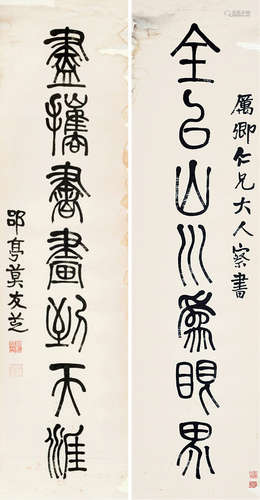 厲卿仁兄大人察書
全㠯山川為眼界
盡攜書畫到天涯
郘亭莫友芝